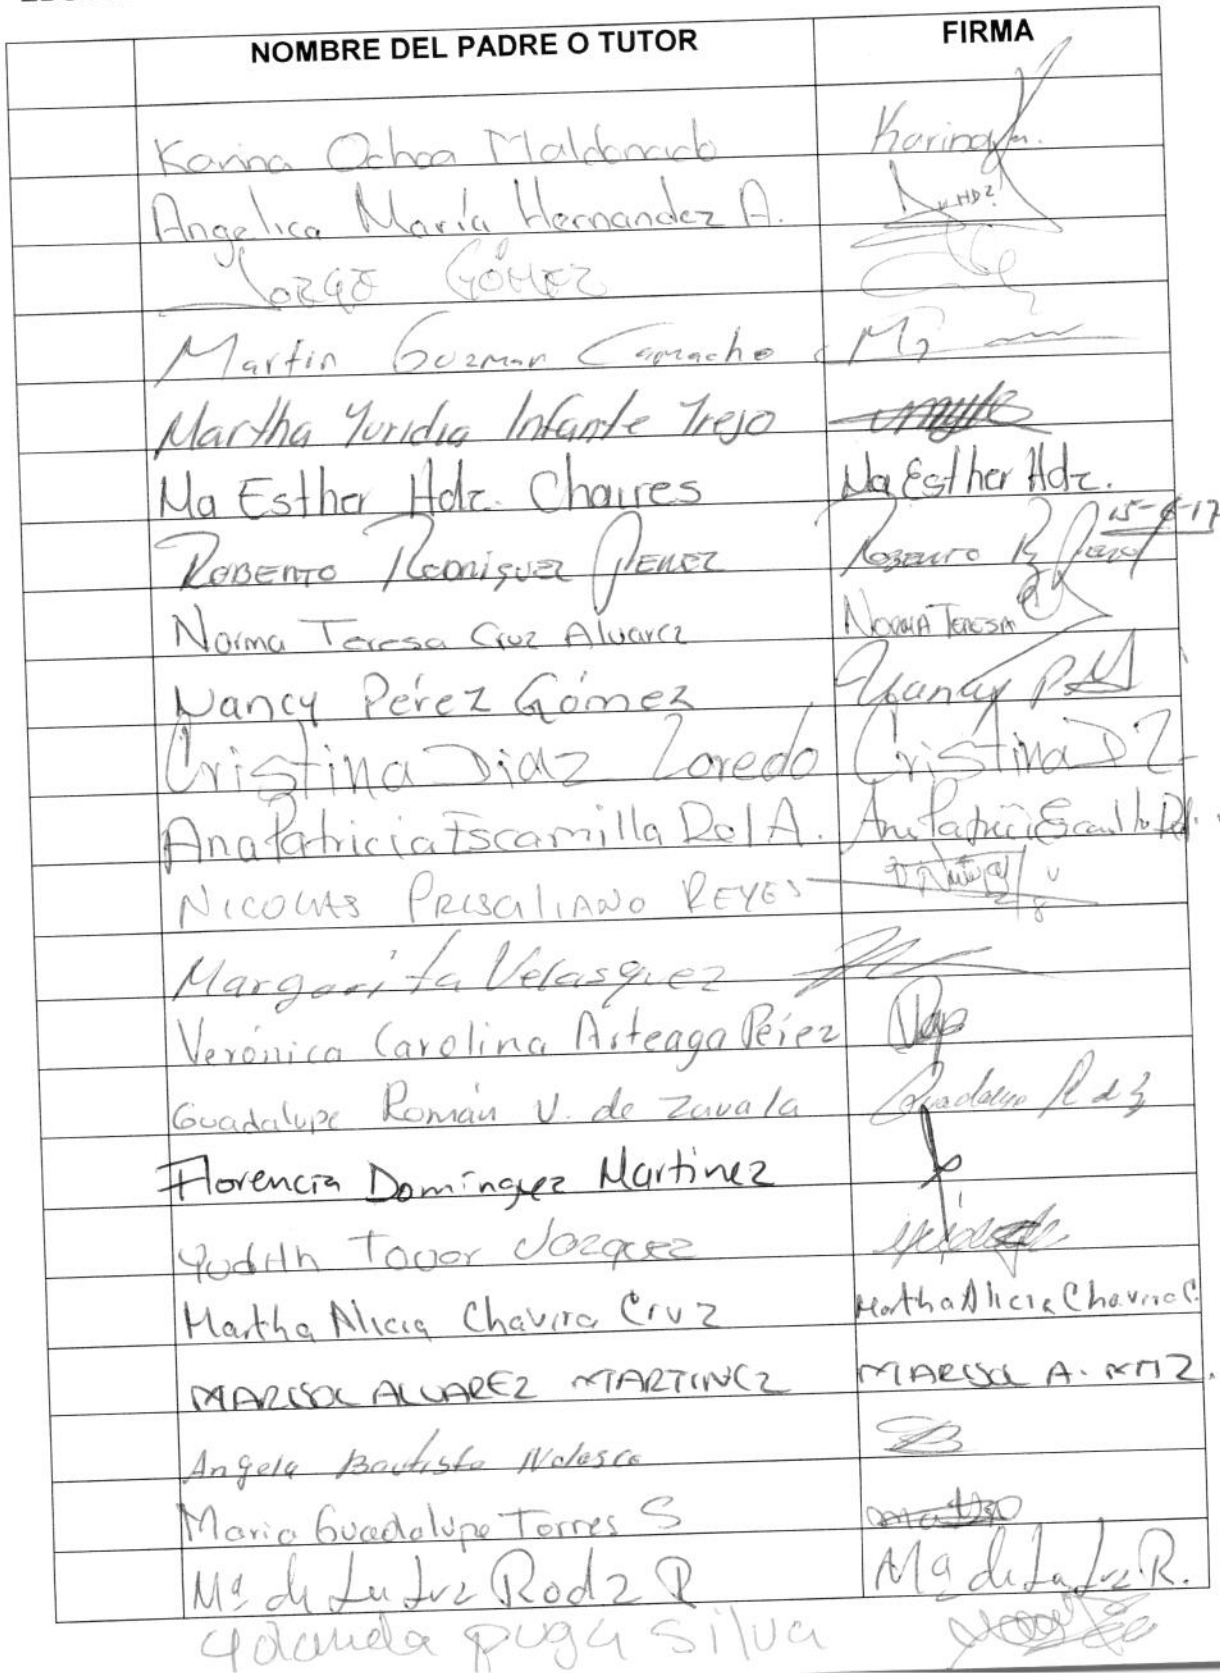 NOMBRE DEL PADRE O TUTOR FIRMA
Karina Ochoa Maldonado Karina
Angelica María Hernandez A. HDZ
JORGE GÓMEZ
Martin Guzman Camacho
Martha Yuridia Infante Trejo
Ma Esther Hdz. Chaires Ma Esther Hdz.
15-6-17
ROBERTO RODRIGUEZ PEREZ ROBERTO R Perez
Norma Teresa Cruz Alvarez NORMA TERESA
Nancy Pérez Gómez Nancy
Cristina Diaz Loredo Cristina D L
Ana Patricia Escamilla Del A. Ana Patricia Escamilla Del
NICOLAS PRISCILIANO REYES
Margarita Velasquez
Verónica Carolina Arteaga Pérez
Guadalupe Román V. de Zavala Guadalupe R d Z
Florencia Domínguez Martínez
Yudith Tovar Vazquez
Martha Alicia Chavira Cruz Martha Alicia Chavira C.
MARISOL ALVAREZ MARTINEZ MARISOL A. MTZ.
Angela Bautista Nolasco
Maria Guadalupe Torres S
Mª de La Luz Rodz R Mª de La Luz R.
Yolanda puga Silva